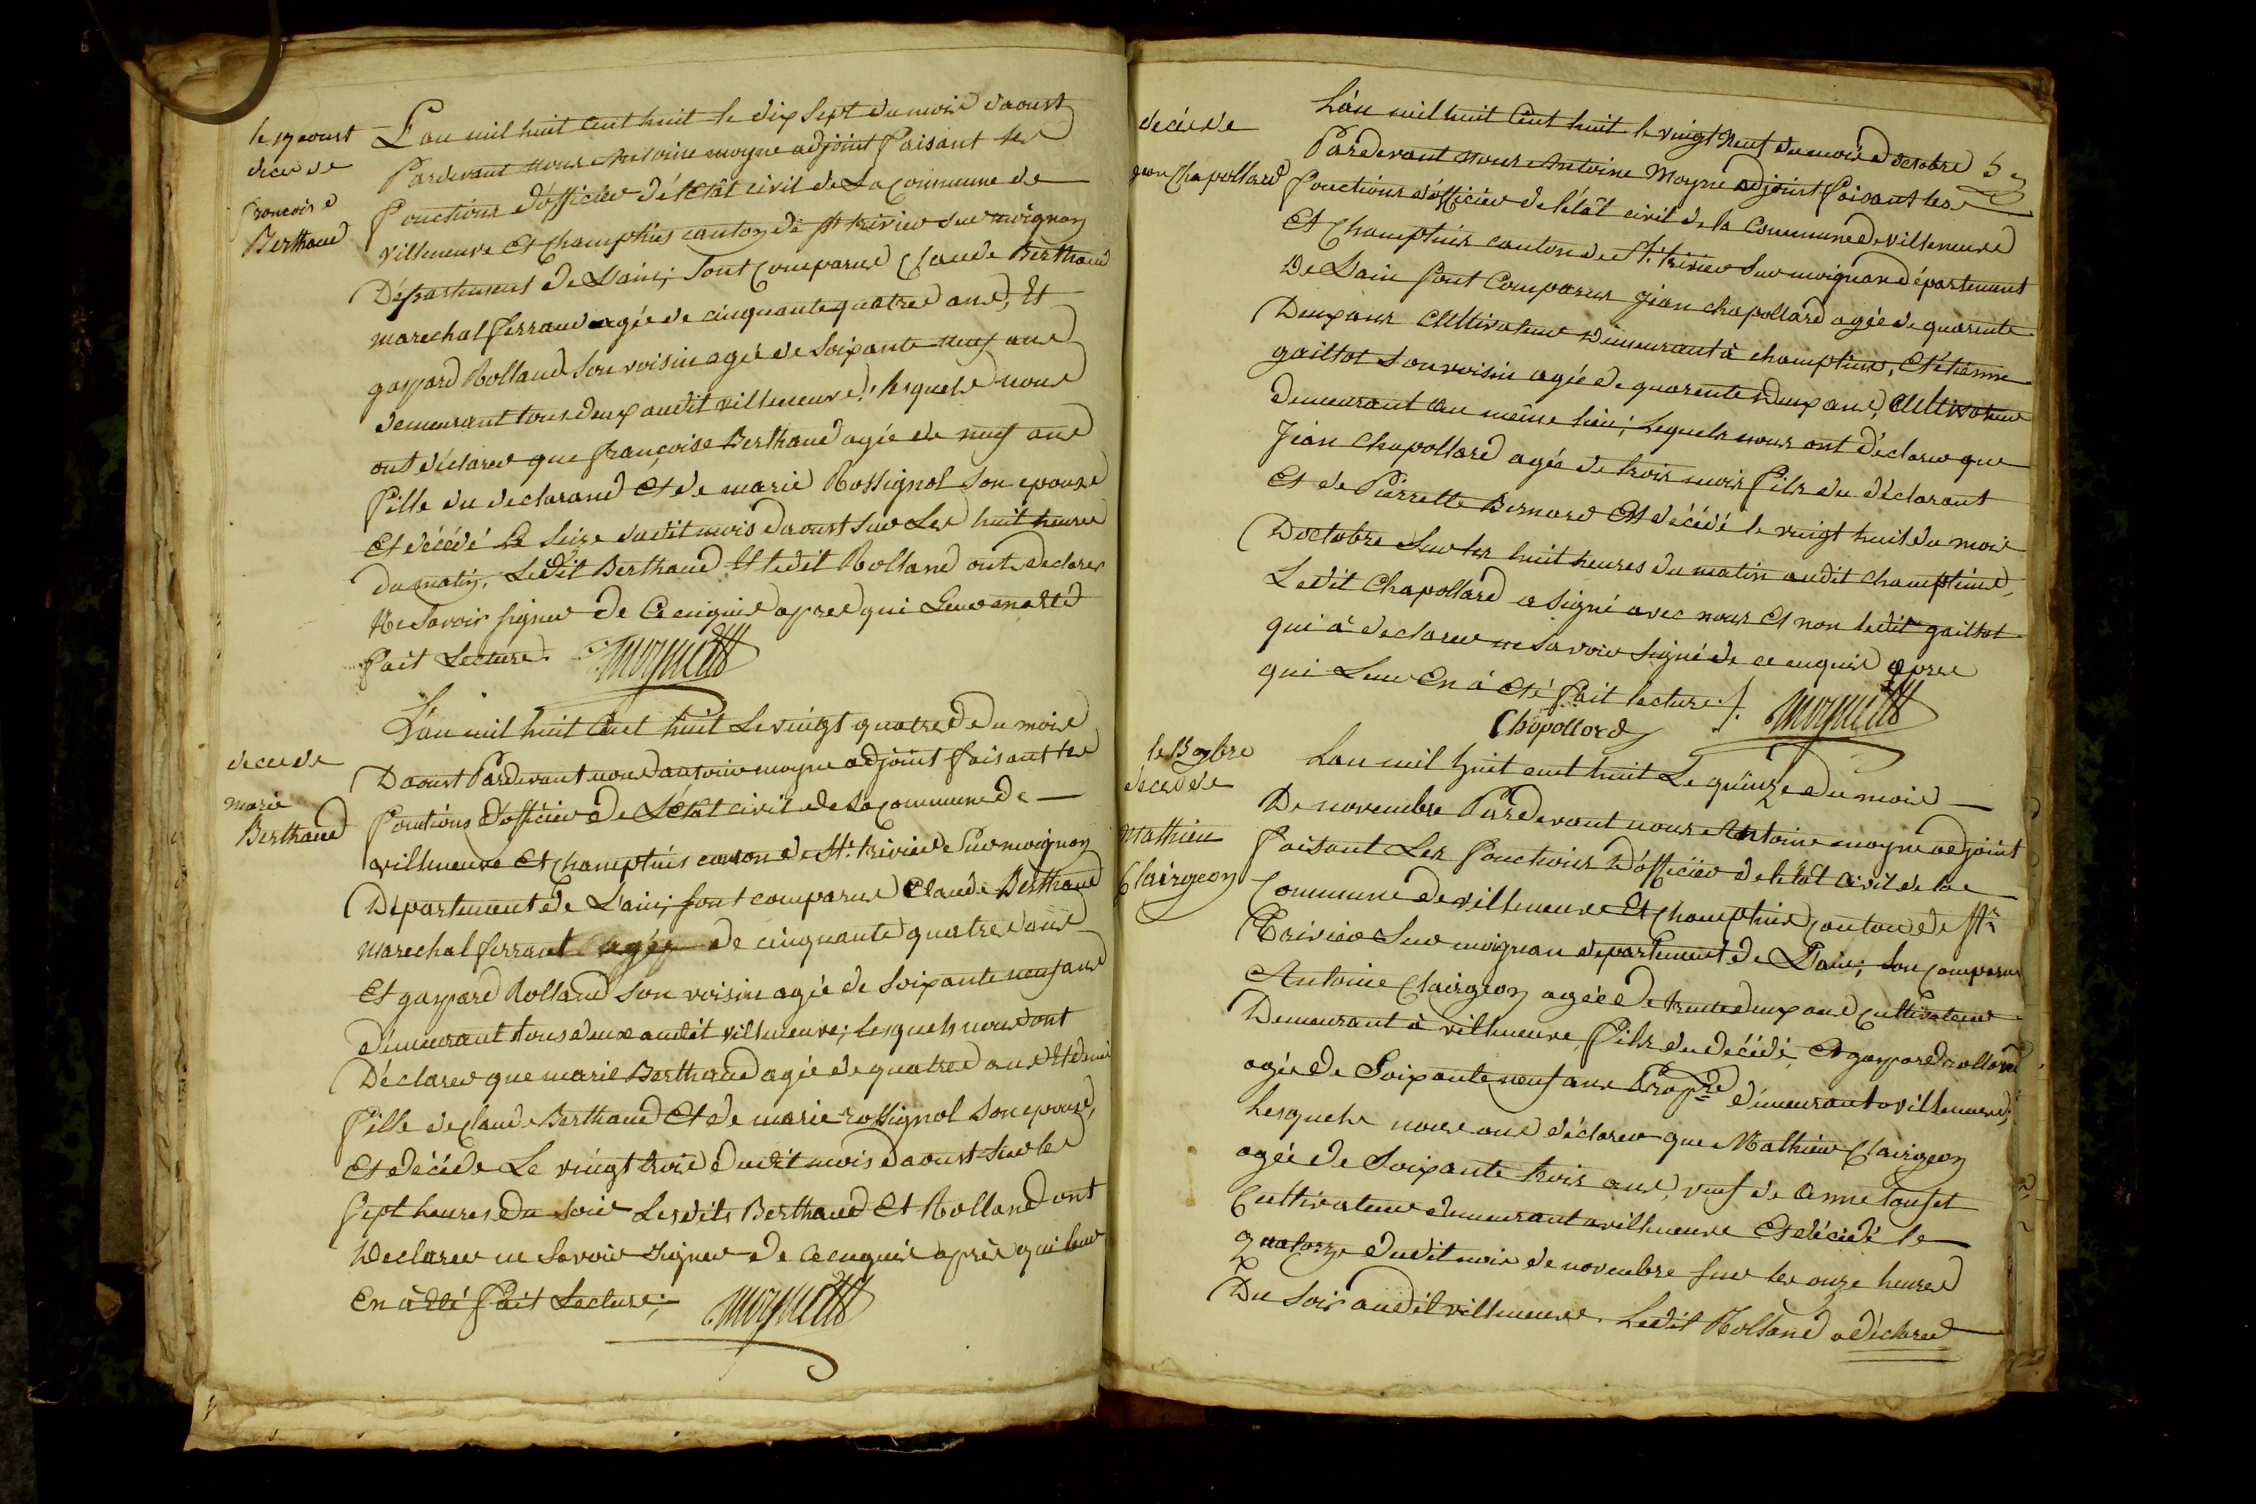 le 17 aoust
decé de
francoise
Berthaud
L'an mil huit cent huit le dix sept du mois daoust
Pardevant nous Antoine moyne adjoint faisant les
fonctions d'officier de létât civil de La Commune de
villeneuve Et Champtins canton de st trivier sur moignan
Département de Lain; sont comparus Claude Berthaud
marechal ferrand agée de cinquante quatre ans, Et
gaspard Rolland son voisin agée de soixante neuf ans
demeurant tous deux audit villeneuve; lesquels nous
ont déclarer que françoise Berthaud agée de neuf ans
fille du declarand Et de marie Rossignol son epouse
Et décédé Le seize dudit mois daoust sur Les huit heures
du matin. Ledit Berthaud Et ledit Rolland ont declarer
Ne savoir signer de Ce enquis apres qui Leur en a Eté
fait Lecture. Moyne adjt
decé de
marie
Berthaud
L'an mil huit Cent huit Le vingt quatre du mois
Daoust Pardevant nous antoine moyne adjoint faisant les
fonctions d'officier de L'état civil de la commune de
villeneuve Et Champtins canton de St. trivier Sur moignan
Département de L'ain; sont comparus Claude Berthaud
marechal ferrant agée de cinquante quatre ans
Et gaspard Rolland son voisin agée de soixante neuf ans
démeurant tous deux audit villeneuve; lesquels nous ont
Déclarer que marie Berthaud agée de quatre ans Et demi
fille de Claude Berthaud Et de marie rossignol son epouse,
Et décédé Le vingt trois dudit mois daoust sur les
sept heures du soir Lesdits Berthaud Et Rolland ont
Declarer ne savoir signer de Ce enquis après qui leur
En à été fait Lecture; Moyne adjt
5
decé de
jean Chapollard
L'an mil huit Cent huit le vingt neuf du mois d'octobre
Pardevant nous Antoine Moyne adjoint faisant les
fonctions d'officier de létât civil de la Commune de villeneuve
Et Champtins canton de St. trivier sur moignan département
De Lain sont Comparus jean chapollard agée de quarente
Deux ans Cultivateur Demeurant à champtins, Et étienne
gaillot son voisin agée de quarente deux ans, Cultivateur
demeurant au même lieu; Lequels nous ont déclarer que
Jean Chapollard agée de trois mois fils du déclarant
Et de Pierrette Bernard Est décédé le vingt huit du mois
D'octobre sur les huit heures du matin audit champtins,
Ledit Chapollard a signé avec nous Et non ledit gaillot
qui à declarer ne savoir signé de ce enquis apres
qui Leur En à été fait lecture ./.
Chapollard Moyne adjt
le 15 9bre
décé de
Mathieu
Clairgeon
L'an mil huit cent huit Le quinze du mois
De novembre Pardevant nous Antoine moyne adjoint
faisant Les fonctions d'officiér de létât Civil de la
Commune de villeneuve Et Champtins Canton de St
Trivier sur moignan departement de Lain; son comparus
Antoine Clairgeon agée de trente deux ans Cultivateur
Demeurant à villeneuve, fils du décédé, Et gaspard rolland
agée de Soixante neuf ans Propre. démeurant a villeneuve;
Lesquels nous ons déclarer que Mathieu Clairgeon
agée de Soixante trois ans, veuf de Anne
Cultivateur demeurant a villeneuve Et décédé le
quatorze dudit mois de novembre sur les onze heures
Du soir audit villeneuve. Ledit Rolland a déclaree